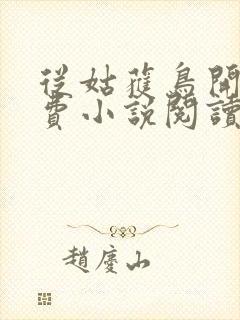 從姑蓷鳥開
費小說閱讀
趙慶山